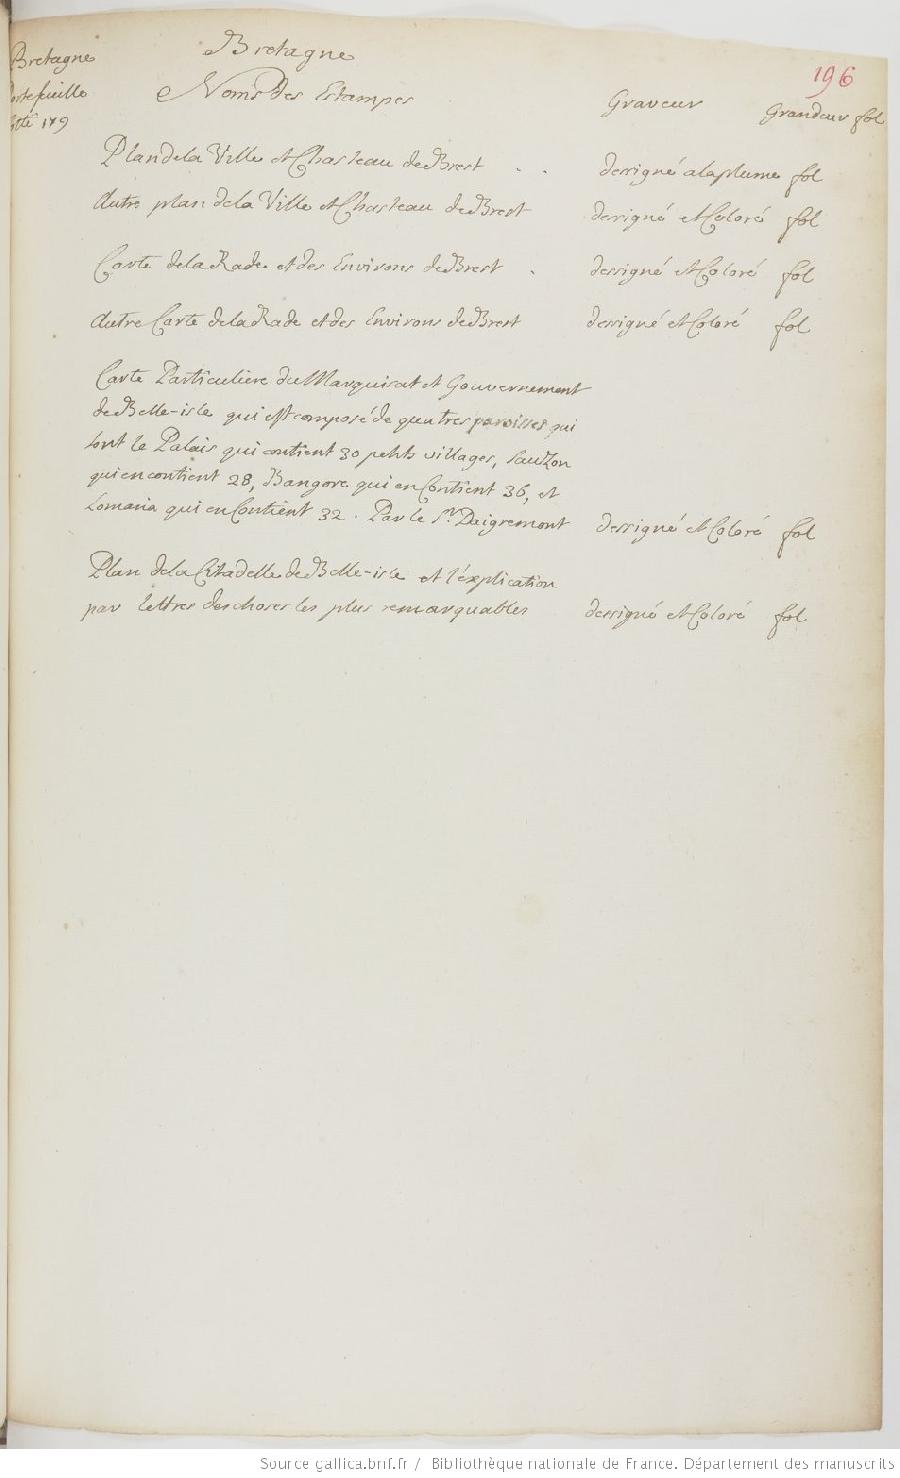 Bretagne
196
Bretagne
portefeuille
cotté 179
Noms des Estampes
Graveur
Grandeur fol
Plan dela Ville et Chasteau de Brest . . dessigné a la plume fol
Autre plan dela Ville et Chasteau de Brest dessigné et Coloré fol
Carte dela Rade et des Environs de Brest . dessigné et Coloré fol
Autre Carte dela Rade et des Environs de Brest dessigné et Coloré fol
Carte Particuliere du Marquisat et Gouvernement
de Belle-isle qui est composé de quatres paroisses qui
sont le Palais qui contient 30 petits villages, Sauzon
qui en contient 28, Bangore qui en Contient 36, et
Lomaria qui en Contient 32. Par le Sr. Daigremont dessigné et Coloré fol
Plan dela Citadelle de Belle-isle et l'explication
par lettres des choses les plus remarquables dessigné et Coloré fol
Source gallica.bnf.fr / Bibliothèque nationale de France. Département des manuscrits